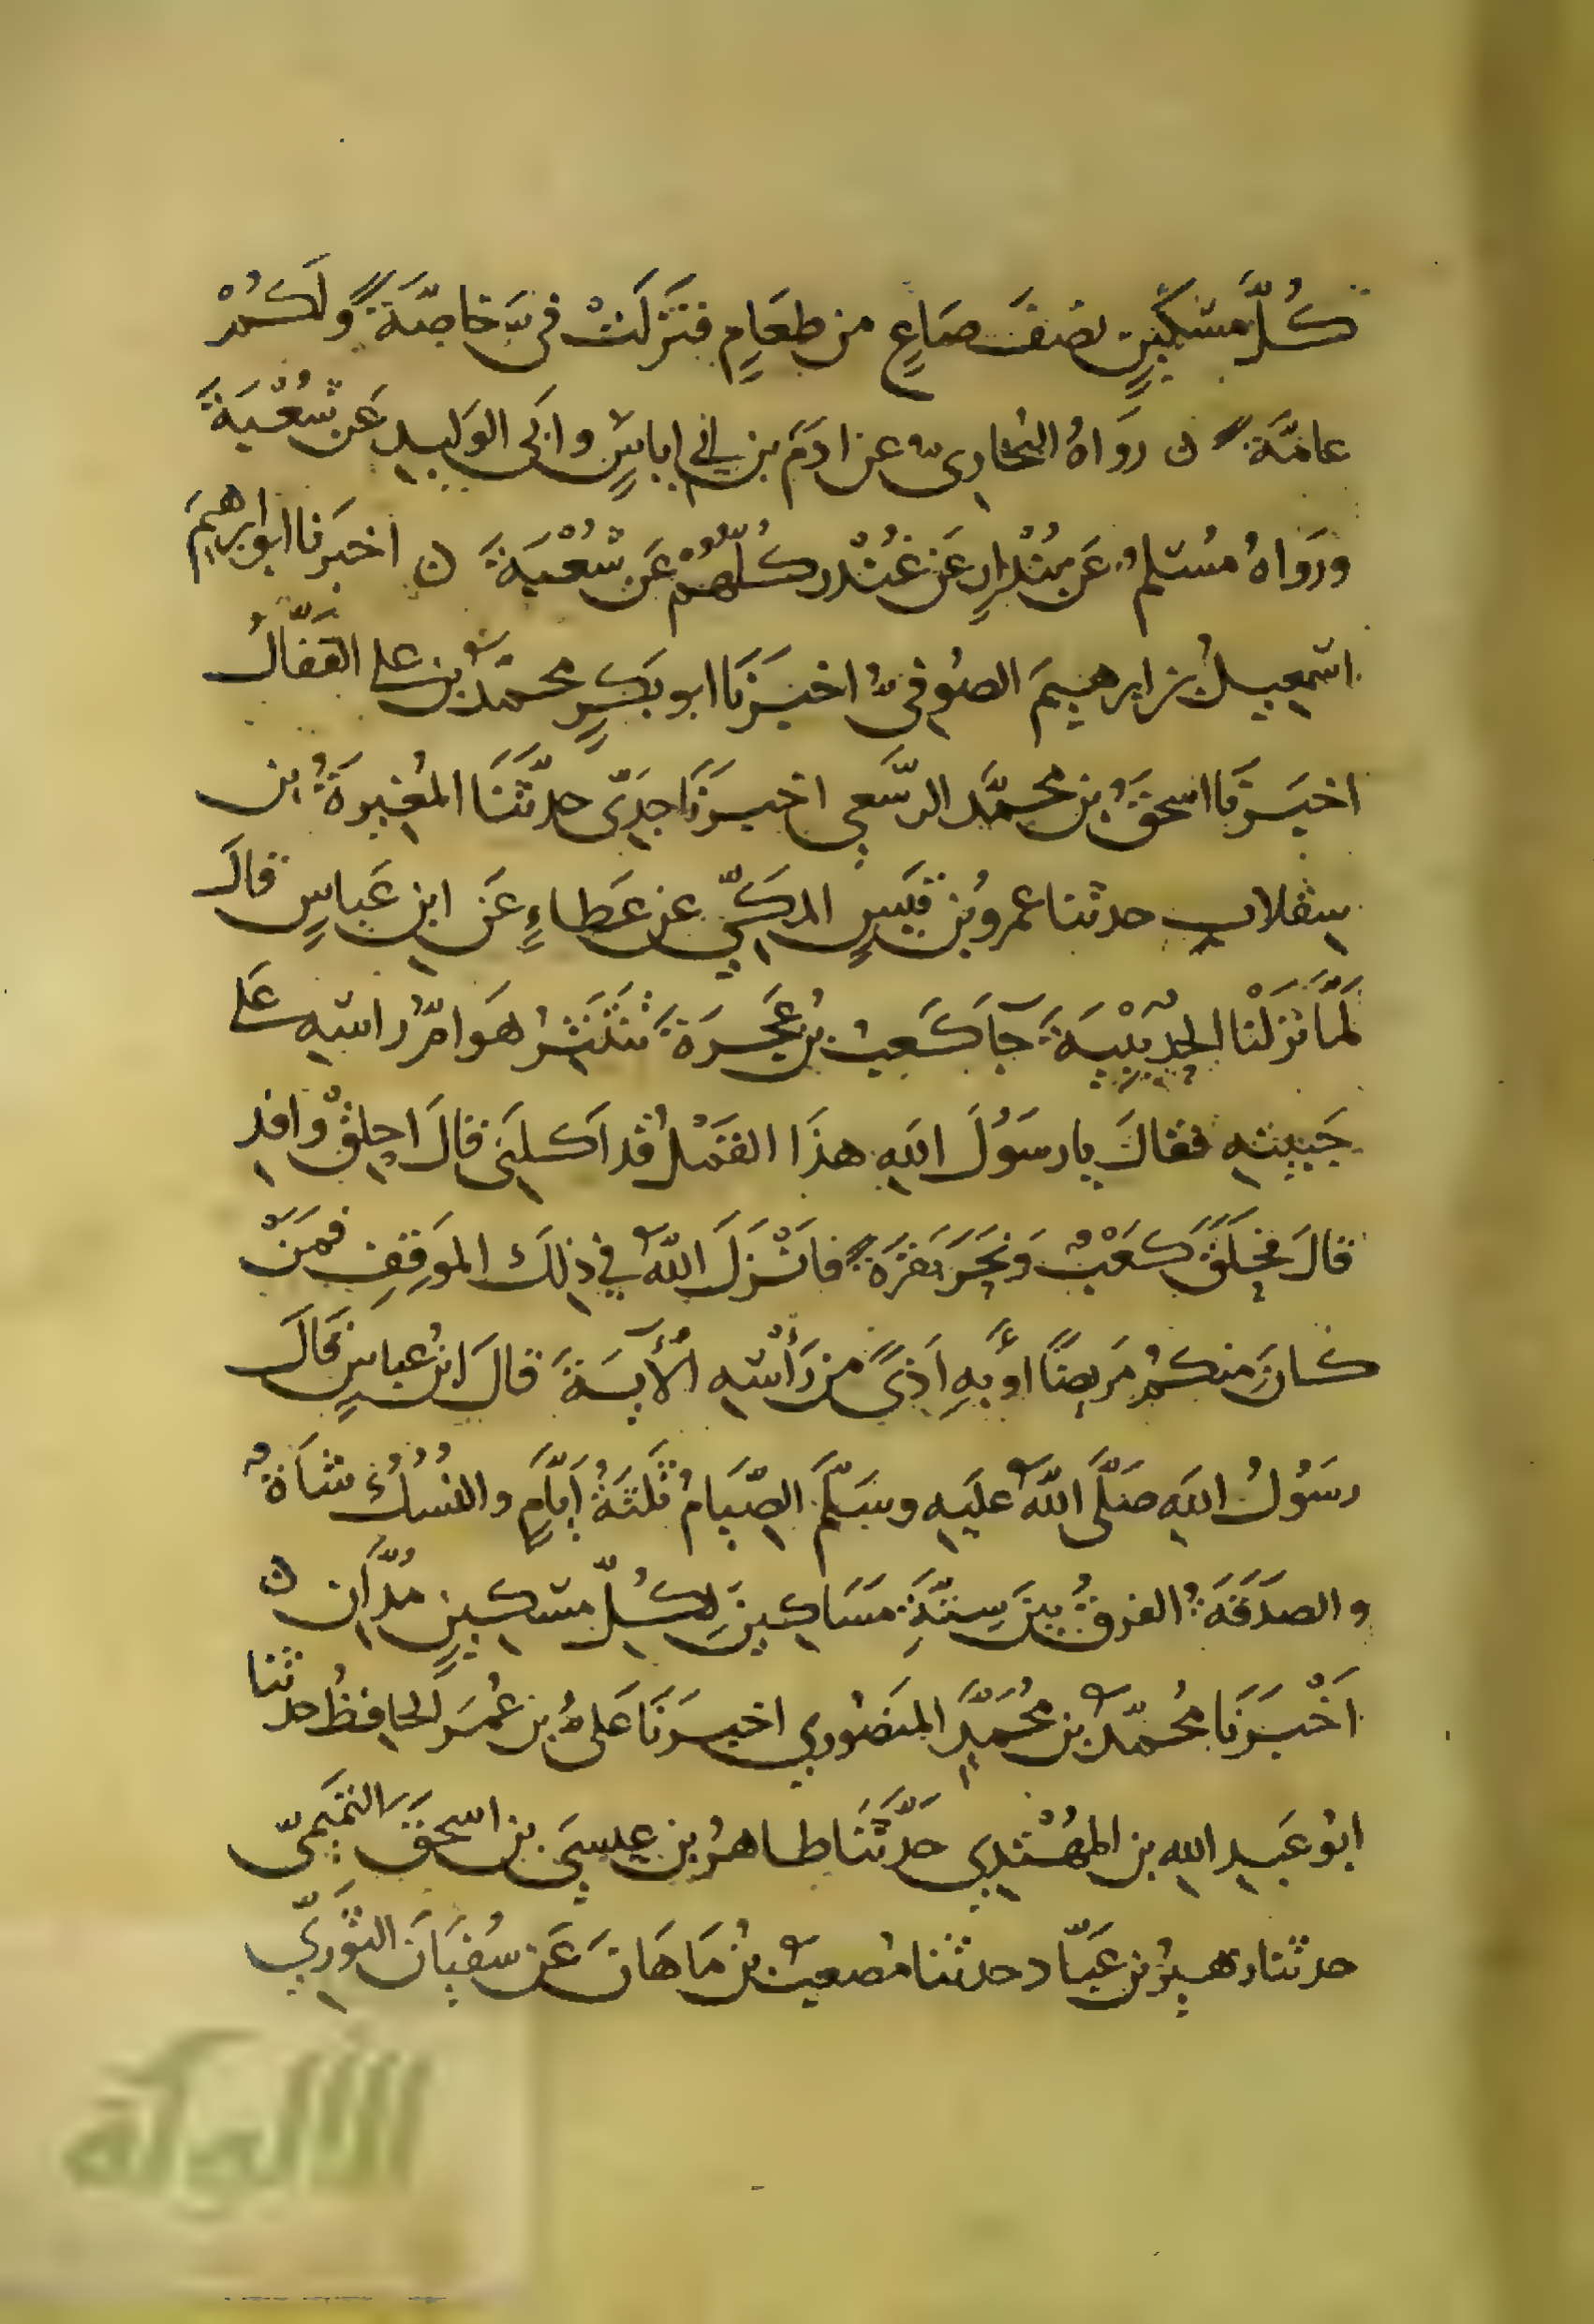 كُلَّ مسْكِينٍ نصْفَ صَاعٍ من طعَامٍ فنَزَلَتْ فىَّ خاصَّةً وَلَكُمْ
عامَّةً ن رَوَاهُ البُخارىُّ عن ادَمَ بن ابي اياسٍ وابى الوَليدِ عَن شُعْبَةَ
ورَوَاهُ مُسْلمٌ عَن بُنْدارٍ عَن غُنْدر كُلّهُمْ عَن شُعْبَةَ ن اخبَرنا ابو ابرهيمَ
اسْمعيلُ بن ابرهيمَ الصُوفىُّ اخبَرَنَا ابو بَكرٍ محمّدُ بن على القَفّالُ
اخبَرَنَا اسحقُ بن محمَّد الرسَّعِي اخبرَنَا جدّى حدّثَنَا المُغيرةُ بن
سِقلابٍ حدثنا عمروُ بن قَيسٍ المكىّ عن عَطاءٍ عَن ابنِ عَباسٍ قالَ
لَمَّا نزَلْنا الحُدَيْبِيَةَ جَآ كَعبُ بن عُجرَةَ تنْثَثِرُ هَوَامّ رَاسِهِ عَلى
جَبينِهِ فقالَ يا رسَوُلَ اللهِ هذَا القَمْلُ قد اَكلَنى قالَ احْلِقْ وافدِ
قالَ فحَلَقَ كَعْبٌ ونَحَرَ بَقرَةً فانْزَلَ اللّهُ في ذلِكَ المَوقِفِ فمَنْ
كانَ مِنكُم مَريضًا اوْ بِهِ اَذىً من رَأْسِهِ الْآيَةَ قالَ ابنُ عباسٍ قالَ
رسَوُلُ اللهِ صَلَّى اللّهُ عليَهِ وسَلّمَ الصّيَامُ ثَلثَةُ أيّامٍ والنسُكُ شاةٌ
والصدَقَةُ الفرقُ بَينَ سِتَّةِ مَسَاكِينَ لِكُلّ مِسكِينٍ مُدَّانِ ن
اَخْبَرَنَا مُحمّدُ بن مُحمّدٍ المنَصُوري اخبَرَنَا عَلىُّ بن عُمَر الحافِظُ حدثنا
ابُو عَبدِ اللهِ بن المهُتَدِي حَدَّثَنَا طاهرُ بن عِيسَى بن اسحقَ التَمِيمىّ
حدثنا زهيرُ بن عَبّاد حدثنا مُصعبُ بنُ مَاهَانَ عَن سُفيَانَ الثوَريّ
الألوكة